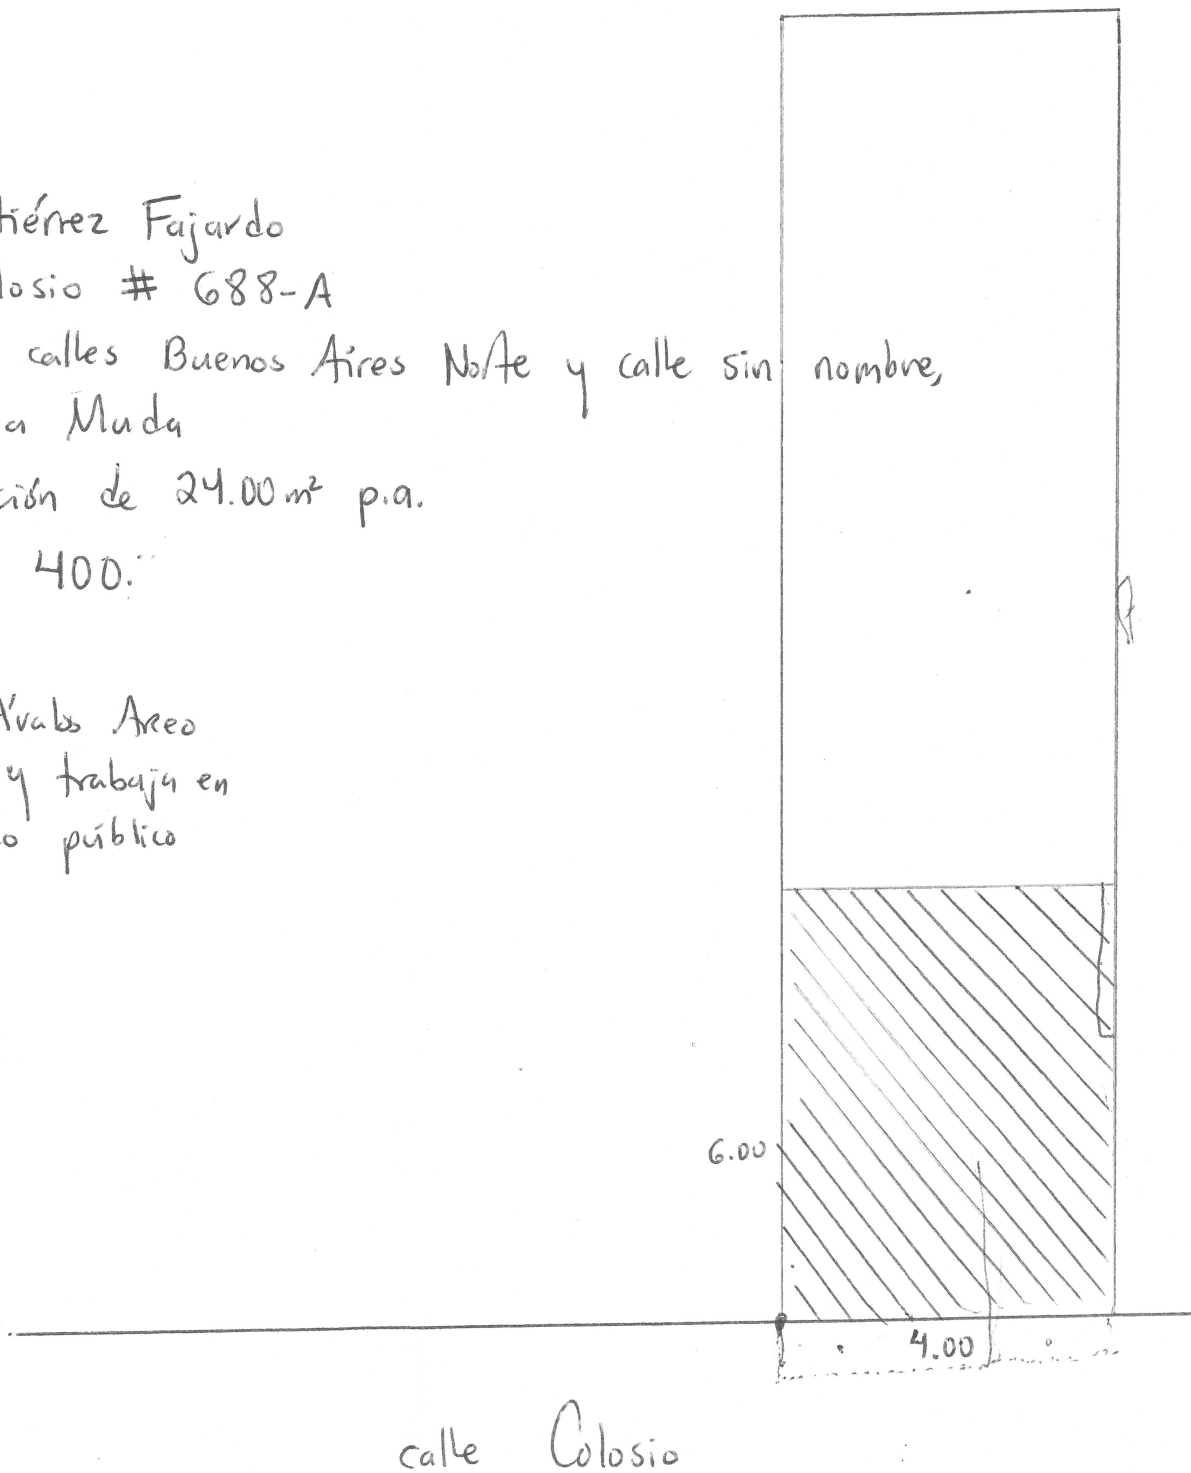 tiérrez Fajardo
losio # 688-A
calles Buenos Aires Norte y calle sin nombre,
a Muda
ción de 24.00 m² p.a.
400.
Ávalos Areo
y trabaja en
o público
6.00
4.00
calle Colosio